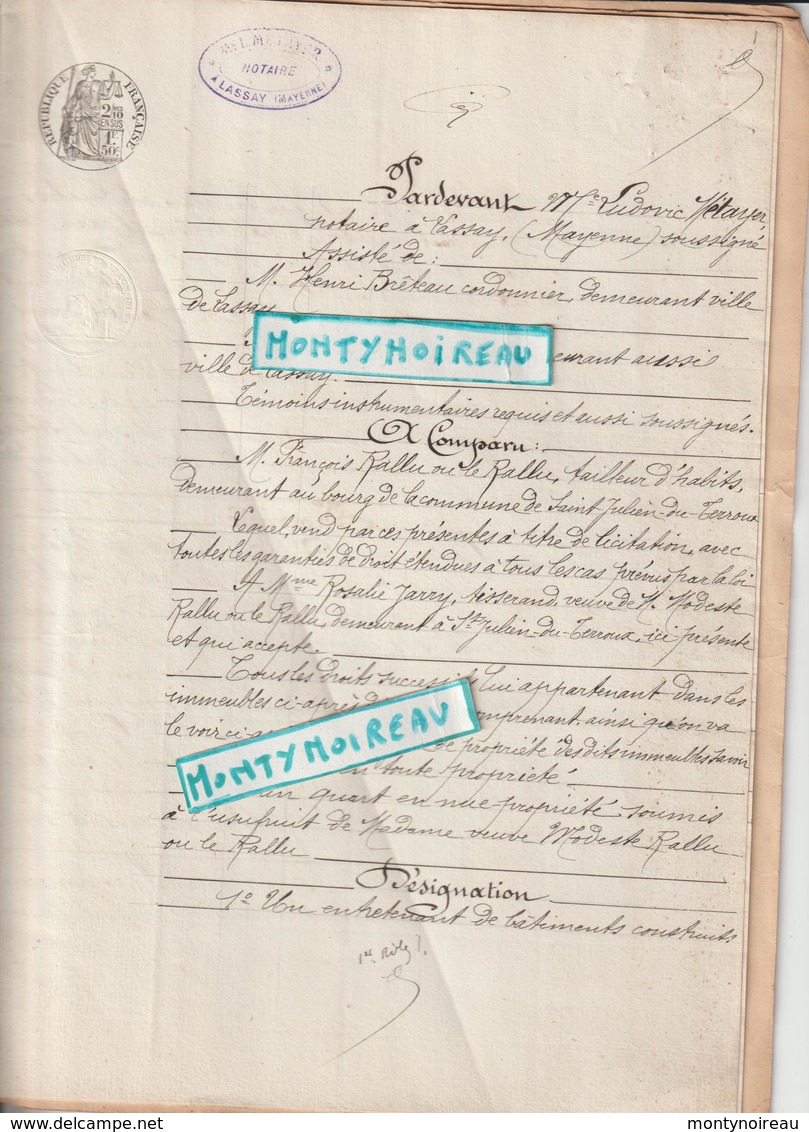 Mᵉ L. METAYER
NOTAIRE
A LASSAY (MAYENNE)
RÉPUBLIQUE FRANÇAISE
2/10
EN SUS
1F
50c
Pardevant Mᵉ Ludovic Métayer,
notaire à Lassay, (Mayenne) soussigné
Assisté de :
M. Henri Brêteau cordonnier, demeurant ville
de Lassay
MONTYNOIREAU
demeurant aussi
ville de Lassay.
Témoins instrumentaires requis et aussi soussignés.
A Comparu :
M. François Rallu ou le Rallu, tailleur d'habits,
demeurant au bourg de la commune de Saint Julien-du-Terroux
Lequel, vend par ces présentes à titre de licitation, avec
toutes les garanties de droit étendues à tous les cas prévus par la loi
A Mme Rosalie Jarry, tisserand, veuve de M. Modeste
Rallu ou le Rallu, demeurant à St Julien-du-Terroux, ici présente
et qui accepte.
Tous les droits successifs lui appartenant dans les
immeubles ci-après comprenant ainsi qu'on va
le voir ci-a de propriété des dits immeubles savoir
MONTYNOIREAU
en toute propriété.
un quart en nue propriété soumis
à l'usufruit de Madame veuve Modeste Rallu
ou le Rallu
Désignation
1º Un entretenant de bâtiments construits
montynoireau